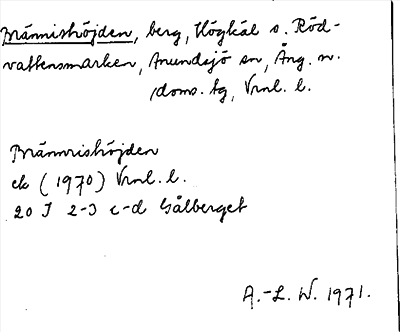 Brännishöjden, berg, Högkål s. Röd-
vattensmarken, Anundsjö sn, Ång. n.
doms. tg, Vrnl. l.
Brännrishöjden
ek (1970) Vrnl. l.
20 I 2-3 c-d Gålberget
A.-L. W. 1971.